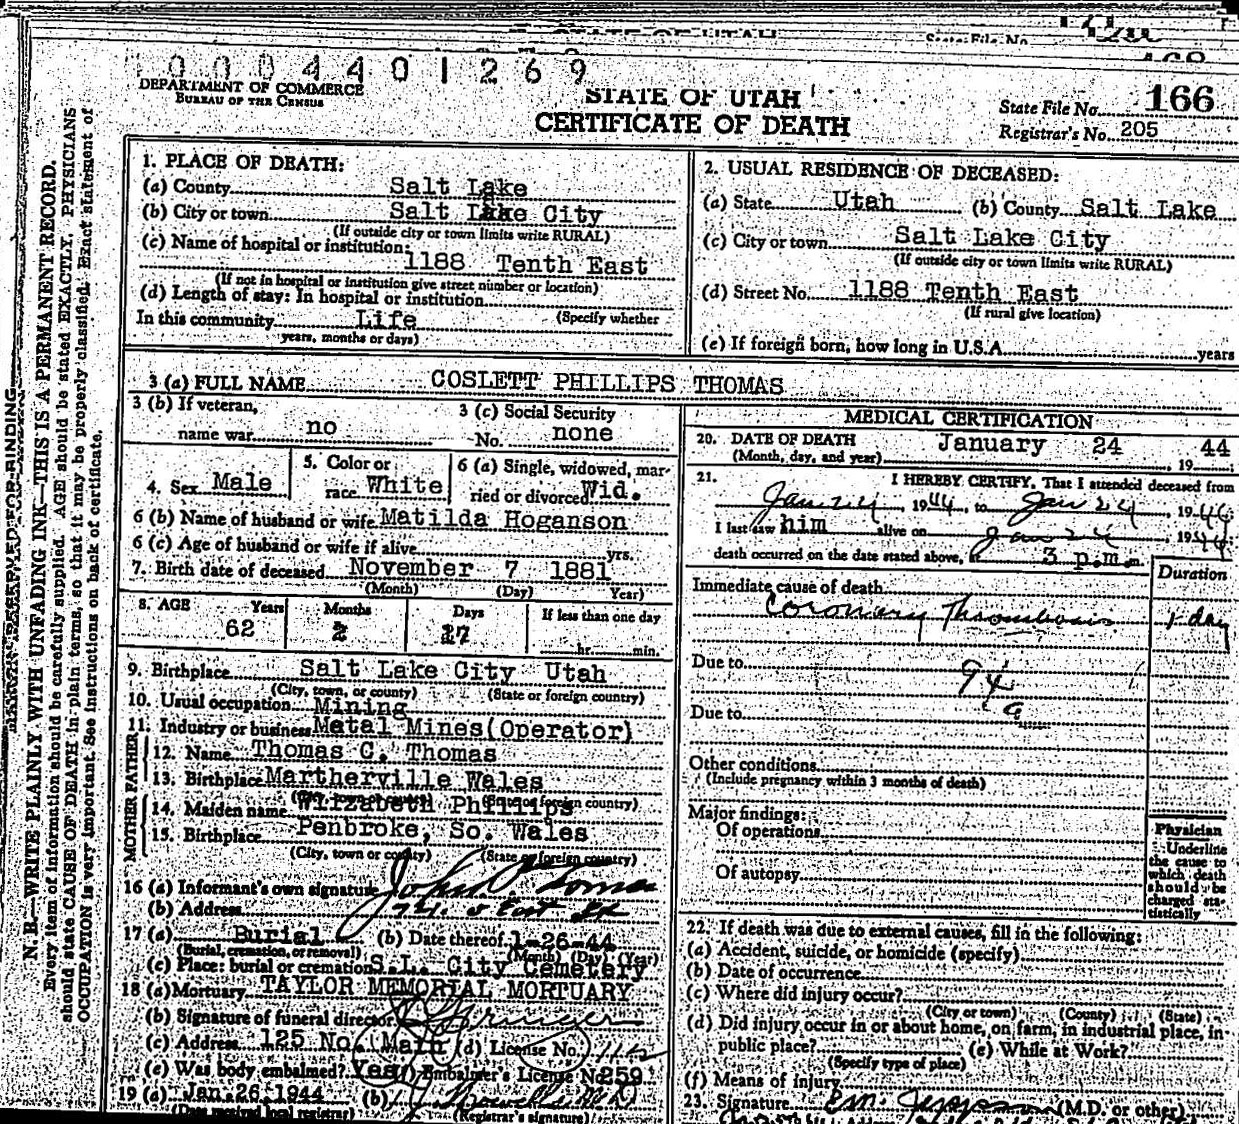 STATE OF UTAH
State File No.
168
0 0 0 4 4 0 1 2 6 9
DEPARTMENT OF COMMERCE
BUREAU OF THE CENSUS
STATE OF UTAH
CERTIFICATE OF DEATH
State File No. 166
Registrar's No. 205
MARGIN RESERVED FOR BINDING
N. B.—WRITE PLAINLY WITH UNFADING INK—THIS IS A PERMANENT RECORD.
Every item of information should be carefully supplied. AGE should be stated EXACTLY. PHYSICIANS
should state CAUSE OF DEATH in plain terms, so that it may be properly classified. Exact statement of
OCCUPATION is very important. See instructions on back of certificate.
1. PLACE OF DEATH:
(a) County Salt Lake
(b) City or town Salt Lake City
(If outside city or town limits write RURAL)
(c) Name of hospital or institution:
1188 Tenth East
(If not in hospital or institution give street number or location)
(d) Length of stay: In hospital or institution
(Specify whether
In this community Life
years, months or days)
2. USUAL RESIDENCE OF DECEASED:
(a) State Utah (b) County Salt Lake
(c) City or town Salt Lake City
(If outside city or town limits write RURAL)
(d) Street No. 1188 Tenth East
(If rural give location)
(e) If foreign born, how long in U.S.A. years
3 (a) FULL NAME COSLETT PHILLIPS THOMAS
3 (b) If veteran,
name war no
3 (c) Social Security
No. none
4. Sex Male
5. Color or
race White
6 (a) Single, widowed, mar-
ried or divorced Wid.
6 (b) Name of husband or wife Matilda Hoganson
6 (c) Age of husband or wife if alive yrs.
7. Birth date of deceased November 7 1881
(Month) (Day) Year)
8. AGE Years Months Days If less than one day
62 2 17 hr. min.
9. Birthplace Salt Lake City Utah
(City, town, or county) (State or foreign country)
10. Usual occupation Mining
11. Industry or business Metal Mines(Operator)
FATHER
12. Name Thomas C. Thomas
13. Birthplace Martherville Wales
(State or foreign country)
MOTHER
14. Maiden name Wlizabeth Phillips
15. Birthplace Penbroke, So. Wales
(City, town or county) (State or foreign country)
16 (a) Informant's own signature John Thomas
(b) Address
17 (a) Burial (b) Date thereof 1-26-44
(Burial, cremation, or removal) (Month) (Day) (Year)
(c) Place: burial or cremation S.L. City Cemetery
18 (a) Mortuary TAYLOR MEMORIAL MORTUARY
(b) Signature of funeral director
(c) Address 125 No. Main (d) License No.
(e) Was body embalmed? Yes (f) Embalmer's License No. 259
19 (a) Jan. 26 1944 (b)
(Date received local registrar) (Registrar's signature)
MEDICAL CERTIFICATION
20. DATE OF DEATH January 24 , 19 44
(Month, day, and year)
21. I HEREBY CERTIFY, That I attended deceased from
Jan 24, 1944, to Jan 24, 1944;
I last saw him alive on Jan 24, 1944;
death occurred on the date stated above, at 3 p.m.
Duration
Immediate cause of death
Coronary Thrombosis 1 day
Due to
94
a
Due to
Other conditions
(Include pregnancy within 3 months of death)
Major findings:
Of operations
Of autopsy
Physician
Underline
the cause to
which death
should be
charged sta-
tistically
22. If death was due to external causes, fill in the following:
(a) Accident, suicide, or homicide (specify)
(b) Date of occurrence
(c) Where did injury occur?
(City or town) (County) (State)
(d) Did injury occur in or about home, on farm, in industrial place, in
public place? (e) While at Work?
(Specify type of place)
(f) Means of injury
23. Signature (M.D. or other)